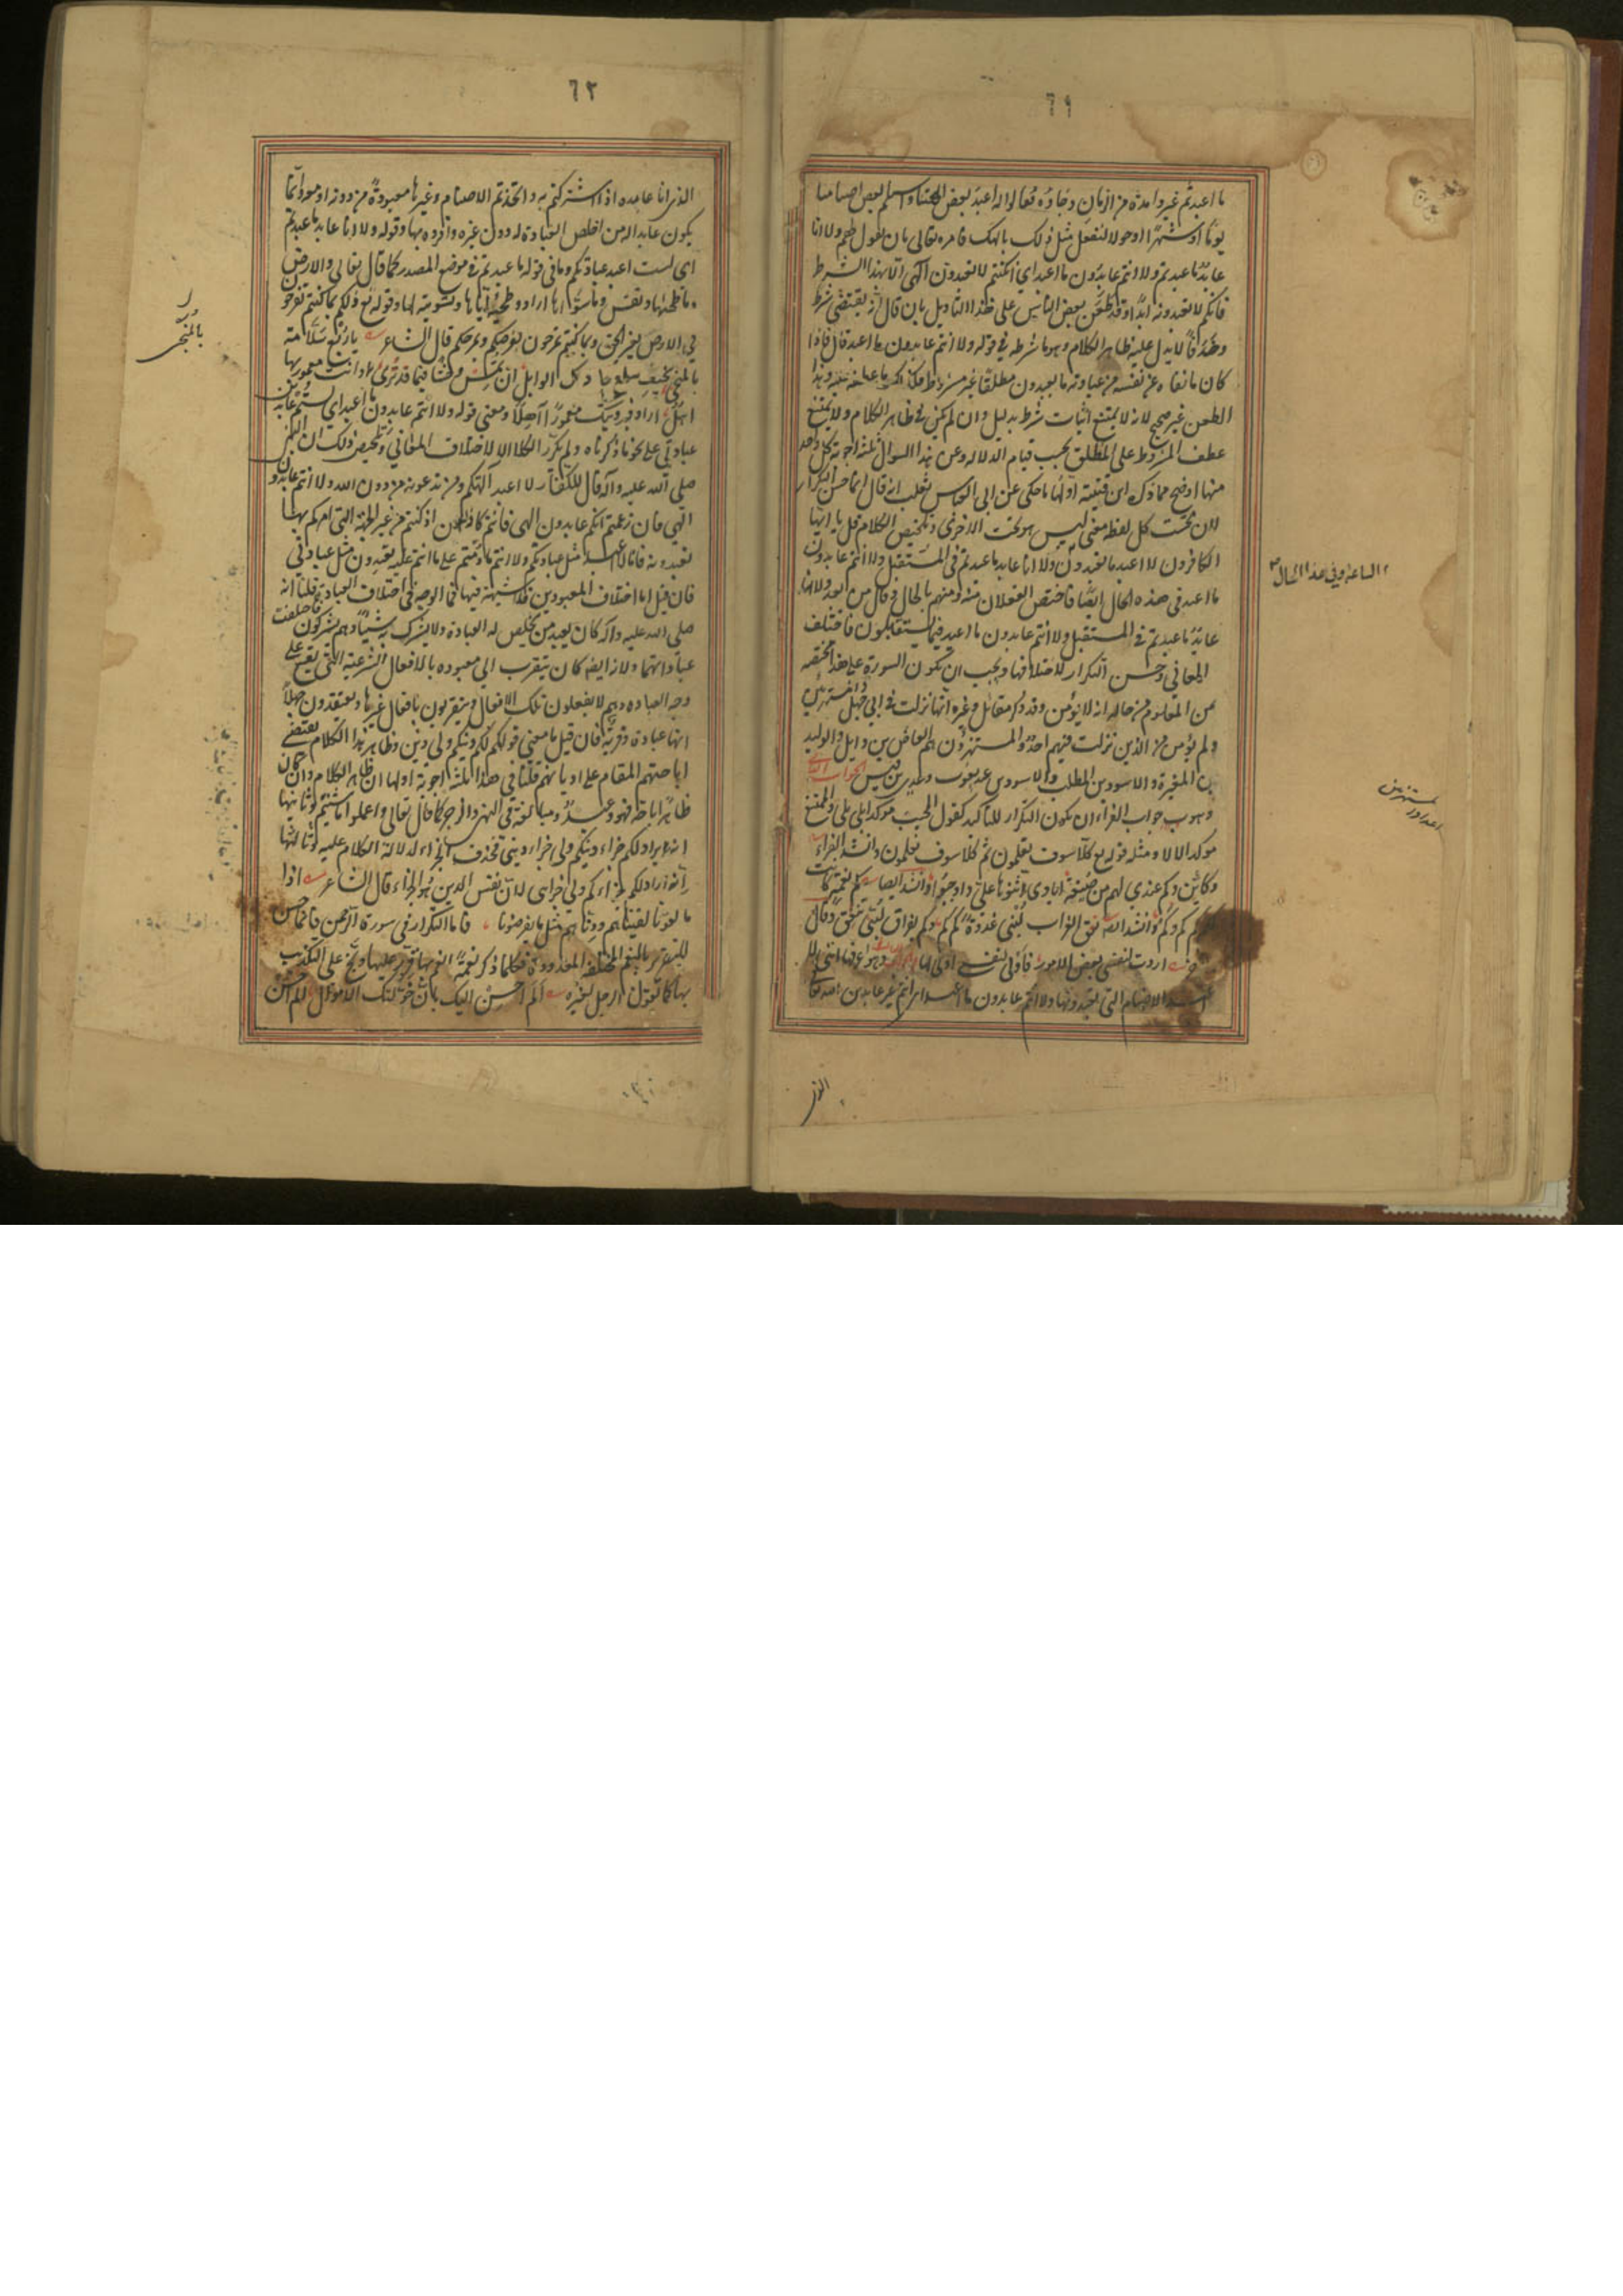 ٦١
ما اعبد ثم غبروا مدة من الزمان وجاؤه فقالوا له اعبد بعض الهتنا واستلم بعض اصنامنا
يوما او شهرا او حولا لنفعل مثل ذلك بالهك فامره تعالى بان يقول لهم ولا انا
عابد ما عبدتم ولا انتم عابدون ما اعبد اى ان كنتم لا تعبدون الهى الا بهذا الشرط
فانكم لا تعبدونه ابدا وقد طعن بعض الناس على هذا التاويل بان قال انه يقتضى شرط
وحذفا لا يدل عليه ظاهر الكلام وهو ما شرطه في قوله ولا انتم عابدون ما اعبد قال فاذا
كان ما نفاه عن نفسه من عبادته ما يعبدون مطلقا غير مشروط فكذلك ما عطفه عليه وهذا
الطعن غير صحيح لانه لا يمتنع اثبات شرط بدليل وان لم يكن في ظاهر الكلام ولا يمتنع
عطف المشروط على المطلق بحسب قيام الدلالة وعن هذا السوال ثلثة اجوبة كل واحد
منها اوضح مما ذكره ابن قتيبة اولها ما حكى عن ابى العباس ثعلب انه قال انما حسن التكرار
لان تحت كل لفظة معنى ليس هو تحت الاخرى وتلخيص الكلام قل يا ايها
الكافرون لا اعبد ما تعبدون ولا انا عابد ما عبدتم في المستقبل ولا انتم عابدون
الساعة وفي هذا الحال
ما اعبد في هذه الحال ايضا فاختص الفعلان منه ومنهم بالحال وقال من بعد ولا انا
عابد ما عبدتم في المستقبل ولا انتم عابدون ما اعبد فيما تستقبلون فاختلف
المعاني وحسن التكرار لاختلافها ويجب ان تكون السورة على هذا مختصة
بمن المعلوم من حاله انه لا يؤمن وقد ذكر مقاتل وغيره انها نزلت في ابي جهل والمستهزئين
ولم يؤمن من الذين نزلت فيهم احد والمستهزؤن هم العاص بن وايل والوليد
بن المغيرة والاسود بن المطلب والاسود بن عبد يغوث وعدي بن قيس الجواب الثاني
وهو جواب الفراء ان يكون التكرار للتاكيد كقول المجيب موكدا بلى بلى والممتنع
موكدا لا لا ومثله قوله تع كلا سوف تعلمون ثم كلا سوف تعلمون وانشد الفراء
وكائن وكم عندي لهم من صنيعة ايادى ثنوها على واوجبوا وانشد ايضا كم نعمة كانت
كم كم وكم وانشد نعق الغراب ببين لبنى غدوة كم كم وكم بفراق لبنى ينعق وقال
اردت لنفسى بعض الامور فاولى لنفسى اولى لها وهو اعرفها اننى لا
اعبد الاصنام التى تعبدونها ولا انتم عابدون ما اعبد اى انتم غير عابدين الله
٦٢
الذى انا عابده اذ اشركتم به واتخذتم الاصنام وغيرها معبودة من دونه او معه وانما
يكون عابدا له من اخلص العبادة له دون غيره وافرده بها وقوله ولا انا عابد ما عبدتم
اى لست اعبد عبادتكم وما فى قوله ما عبدتم في موضع المصدر كما قال تعالى والارض
وما طحيها ونفس وما سويها اراد وطحيه اياها وتسويته لها وقوله تع ذلكم بما كنتم تفرحون
في الارض بغير الحق وبما كنتم تمرحون يريد بفرحكم ومرحكم قال الشاعر يا ربع سلامة
بالمنحنى بخيف سلع جادك الوابل ان تمس وحشا فيما قد ترى وانت معمور بها
اهل اراد فبرويتك معمورا آهلا ومعنى قوله ولا انتم عابدون ما اعبد اى لستم عابدين
عبادتى على نحو ما ذكرناه ولم يتكرر الكلام الا لاختلاف المعاني وتلخيص ذلك ان النبى
صلى الله عليه واله قال للكفار لا اعبد آلهتكم ومن تدعونه من دون الله ولا انتم عابدون
الهى فان زعمتم انكم عابدون الهى فانتم كاذبون اذ كنتم من غير الجهة التى امركم بها
تعبدونه فانا لا اعبد مثل عبادتكم ولا انتم مادمتم على ما انتم عليه تعبدون مثل عبادتى
فان قيل اما اختلاف المعبودين فلا شبهة فيها فما الوجه في اختلاف العبادة قلنا انه
صلى الله عليه واله كان يعبد من يخلص له العبادة ولا يشرك به شيئا وهم مشركون فاختلفت
عباداتهما ولانه ايضا كان يتقرب الى معبوده بالافعال الشرعية التى تقع على
وجه العبادة وهم لا يفعلون تلك الافعال ويتقربون بافعال غيرها ويعتقدون جهلا
انها عبادة وقربة فان قيل ما معنى قوله لكم دينكم ولى دين وظاهر هذا الكلام يقتضى
اباحتهم المقام على اديانهم قلنا في هذا ثلثة اجوبة اولها ان ظاهر الكلام وان كان
ظاهره اباحة فهو وعيد ومبالغة في النهى والزجر كما قال تعالى واعملوا ما شئتم وثانيها
انه اراد لكم جزاء دينكم ولى جزاء دينى فحذف الجزاء لدلالة الكلام عليه وثالثها
انه اراد لكم جزاءكم ولى جزائى لان نفس الدين هو الجزاء قال الشاعر اذا
ما لقونا لقيناهم ودناهم مثل ما يقرضونا فاما التكرار في سورة الرحمن فانما حسن
للتقرير بالنعم المختلفة المعدودة فكلما ذكر نعمة انعم بها قرر عليها ووبخ على التكذيب
بها كما يقول الرجل لغيره الم احسن اليك بان خولتك الاموال الم احسن